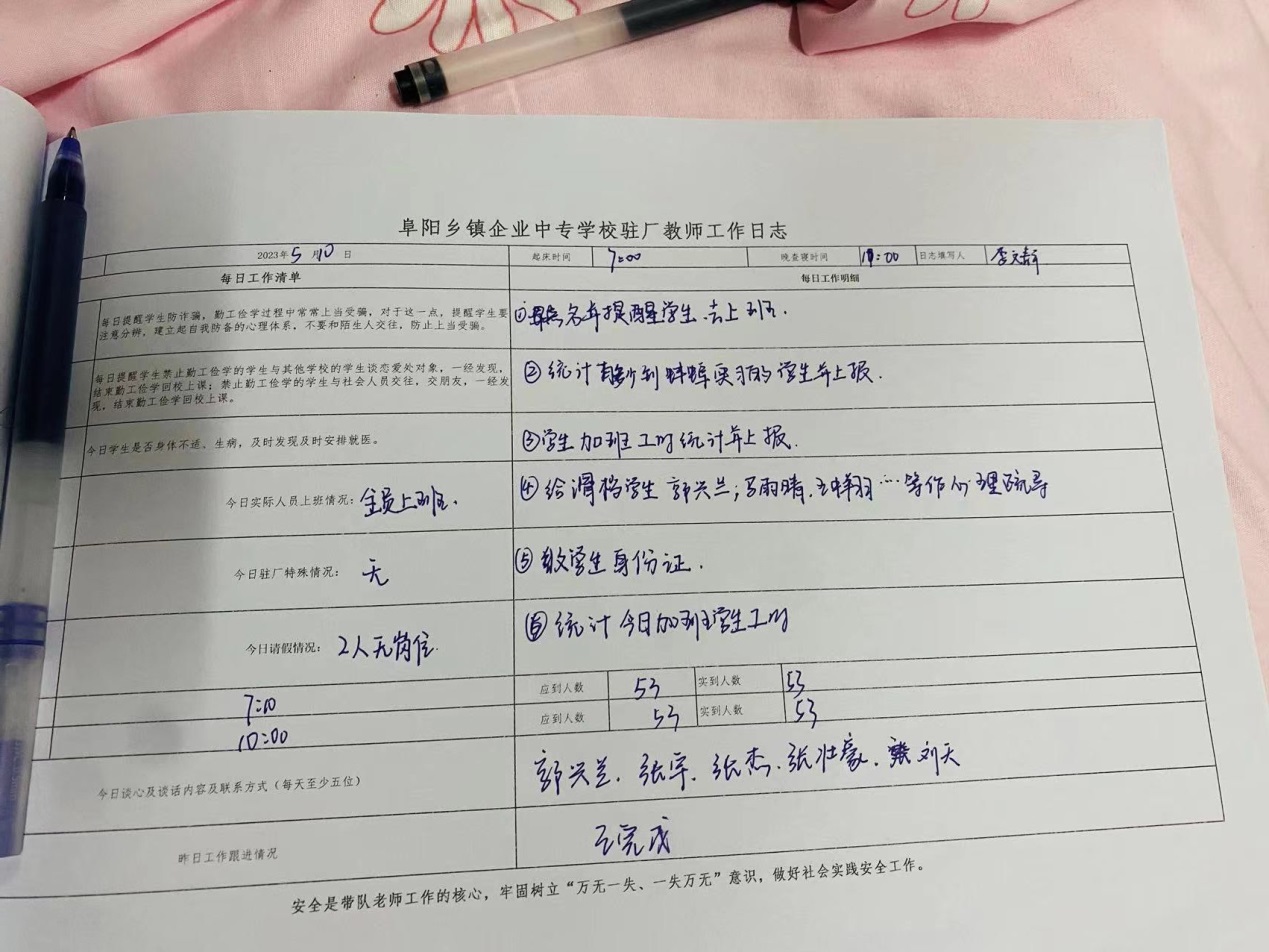 阜阳乡镇企业中专学校驻厂教师工作日志
2023年5月10日 起床时间 7:00 晚查寝时间 10:00 日志填写人 李文静
每日工作清单 每日工作明细
每日提醒学生防诈骗，勤工俭学过程中常常上当受骗，对于这一点，提醒学生要
注意分辨，建立起自我防备的心理体系，不要和陌生人交往，防止上当受骗。
①点名并提醒学生去上班.
每日提醒学生禁止勤工俭学的学生与其他学校的学生谈恋爱处对象，一经发现，
结束勤工俭学回校上课；禁止勤工俭学的学生与社会人员交往，交朋友，一经发
现，结束勤工俭学回校上课。
②统计到蚌埠实习的学生并上报.
今日学生是否身体不适、生病，及时发现及时安排就医。
③学生加班工时统计并上报.
今日实际人员上班情况：全员上班.
④给学生郭兴兰；马雨晴、…等作心理疏导
今日驻厂特殊情况：无
⑤收学生身份证.
今日请假情况：2人无岗位.
⑥统计今日加班学生工时
7:00 应到人数 53 实到人数 53
10:00 应到人数 53 实到人数 53
今日谈心及谈话内容及联系方式（每天至少五位）
郭兴兰、张宇、张杰、张壮豪、刘天
昨日工作跟进情况 已完成
安全是带队老师工作的核心，牢固树立“万无一失、一失万无”意识，做好社会实践安全工作。